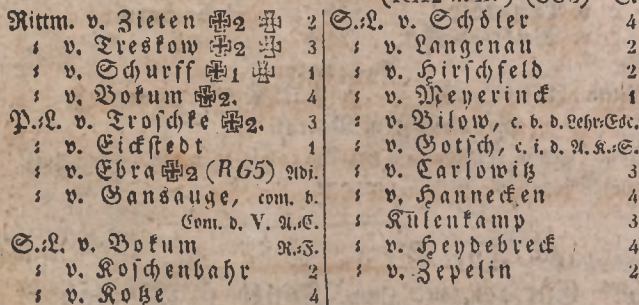 Rittm. v. Zieten ✠2 ✠ 2
: v. Treskow ✠2 ✠ 3
: v. Schurff ✠1 ✠ 1
: v. Bokum ✠2. 4
P.:L. v. Troschke ✠2. 3
: v. Eickstedt 1
: v. Ebra ✠2 (RG5) Adj.
: v. Gansauge, com. b.
Com. d. V. A.:C.
S.:L. v. Bokum R.:F.
: v. Koschenbahr 2
: v. Kotze 4
S.:L. v. Schöler 4
: v. Langenau 2
: v. Hirschfeld 2
: v. Meyerinck 1
: v. Bilow, c. b. d. Lehr:Esc.
: v. Gotsch, c. i. d. A. K.:S.
: v. Carlowitz 3
: v. Hannecken 4
: Külenkamp 3
: v. Heydebreck 4
: v. Zepelin 2